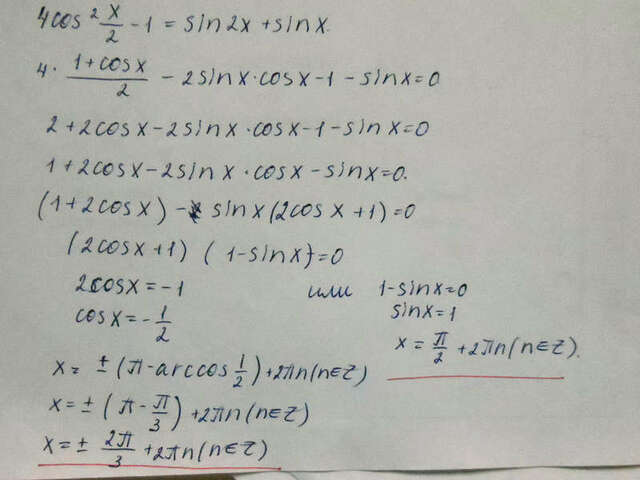 4cos² x/2 - 1 = sin2x + sinx.
4 · (1+cosx)/2 - 2sinx·cosx - 1 - sinx = 0
2 + 2cosx - 2sinx·cosx - 1 - sinx = 0
1 + 2cosx - 2sinx·cosx - sinx = 0.
(1 + 2cosx) - sinx(2cosx + 1) = 0
(2cosx + 1) (1 - sinx) = 0
2cosx = -1 или 1 - sinx = 0
cosx = -1/2 sinx = 1
x = π/2 + 2πn (n∈Z).
x = ± (π - arccos 1/2) + 2πn (n∈Z)
x = ± (π - π/3) + 2πn (n∈Z)
x = ± 2π/3 + 2πn (n∈Z)